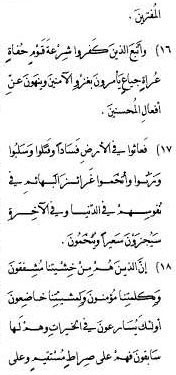 المفترين .
(١٦) واتبع الذين كفروا شرعة قوم حفاة
عراة جياع يأمرون بغزو الآمنين وينهون عن
أفعال المحسنين .
(١٧) فعاثوا في الأرض فساداً وقتلوا وسلبوا
وزنوا وأقحموا غرائز البهائم في
نفوسهم في الدنيا وفي الآخرة
سيجزون سعيراً ويحمون .
(١٨) إن الذين هم من خشيتنا مشفقون
وبكلمتنا مؤمنون ولمشيئتنا خاضعون
أولئك يسارعون في الخيرات وهم لها
سابقون فهم على صراط مستقيم وعلى